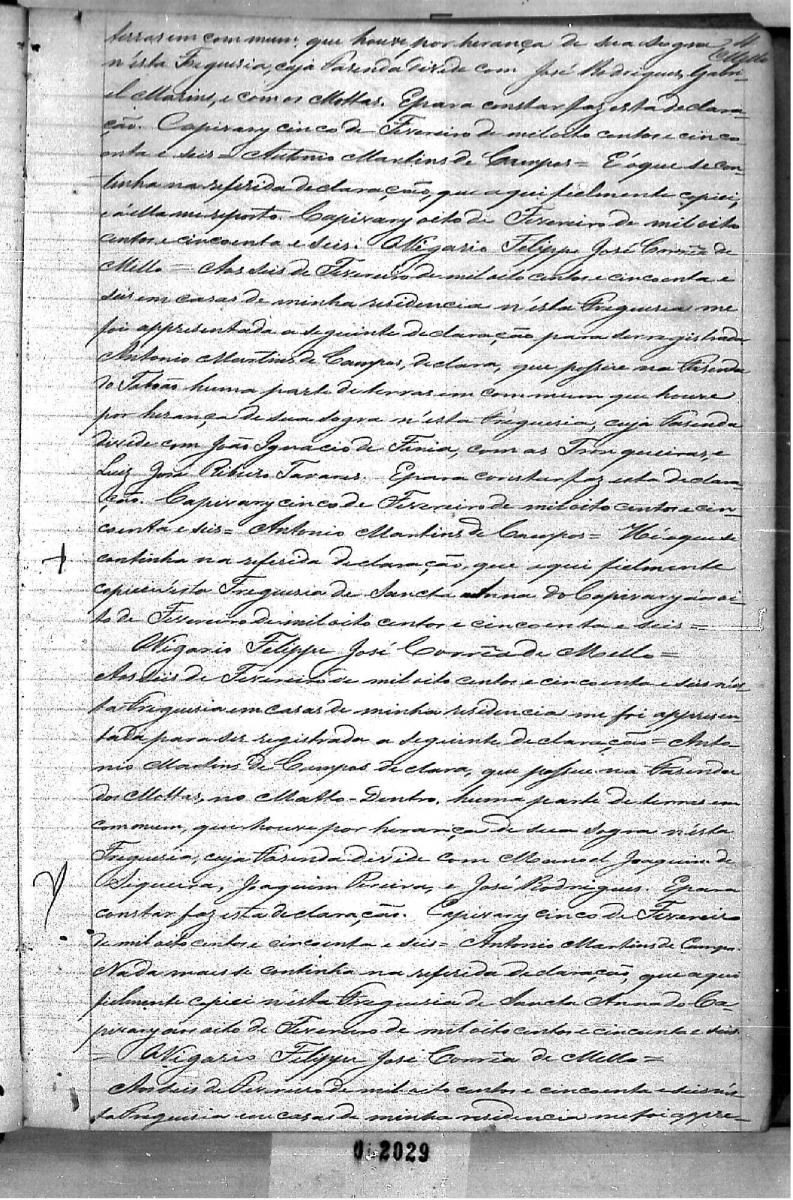 4
CMello
terras em commum, que houve por herança de sua sogra
n'ésta Freguesia, cuja Fasenda divide com José Rodrigues, Gabri-
el Marins, e com os Mottas. E para constar faz ésta declara-
ção. Capivary cinco de Fevereiro de mil oito centos e cinco-
enta e seis = Antonio Martins de Campos = E' o que se con-
tinha na referida declaração, que aqui fielmente copiei,
e á élla me reporto. Capivary oito de Fevereiro de mil oito
centos e cincoenta e seis. O Vigario Felippe José Corrêa de
Mello = Aos seis de Fevereiro de mil oito centos e cincoenta e
seis em casas de minha residencia n'ésta Freguesia me
foi appresentada a seguinte declaração para ser registrada
Antonio Martins de Campos, declara, que possue na Fasenda
do Taboão huma parte de terras em commum que houve
por herança de sua sogra n'ésta Freguesia, cuja Fasenda
divide com João Ignacio de Faria, com as Tronqueiras, e
Luiz José Ribeiro Tavares. E para constar faz ésta declara-
ção. Capivary cinco de Fevereiro de mil oito centos e cin-
coenta e seis = Antonio Martins de Campos = Hé o que se
continha na referida declaração, que aqui fielmente
copiei n'ésta Freguesia de Sancta Anna do Capivary aos oi-
to de Fevereiro de mil oito centos e cincoenta e seis =
O Vigario Felippe José Corrêa de Mello =
Aos seis de Fevereiro de mil oito centos e cincoenta e seis n'és-
ta Freguesia em casas de minha residencia me foi appresen-
tada para ser registrada a seguinte declaração = Anto-
nio Martins de Campos declara, que possue na Fasenda
dos Mottas, no Matto-Dentro, huma parte de terras em
commum, que houve por herança de sua sogra n'ésta
Freguesia, cuja Fasenda divide com Manoel Joaquim de
Siqueira, Joaquim Pereira, e José Rodrigues. E para
constar faz ésta declaração. Capivary cinco de Fevereiro
de mil oito centos e cincoenta e seis = Antonio Martins de Campos.
Nada mais se continha na referida declaração, que aqui
fielmente copiei n'ésta Freguesia de Sancta Anna do Ca-
pivary aos oito de Fevereiro de mil oito centos e cincoenta e seis
= O Vigario Felippe José Corrêa de Mello =
Aos seis de Fevereiro de mil oito centos e cincoenta e seis n'és-
ta Freguesia em casas de minha residencia me foi appre-
0.2029